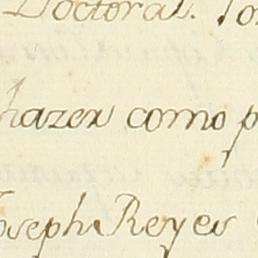 Doctoral. Jo
hazer como p
Joseph Reyes